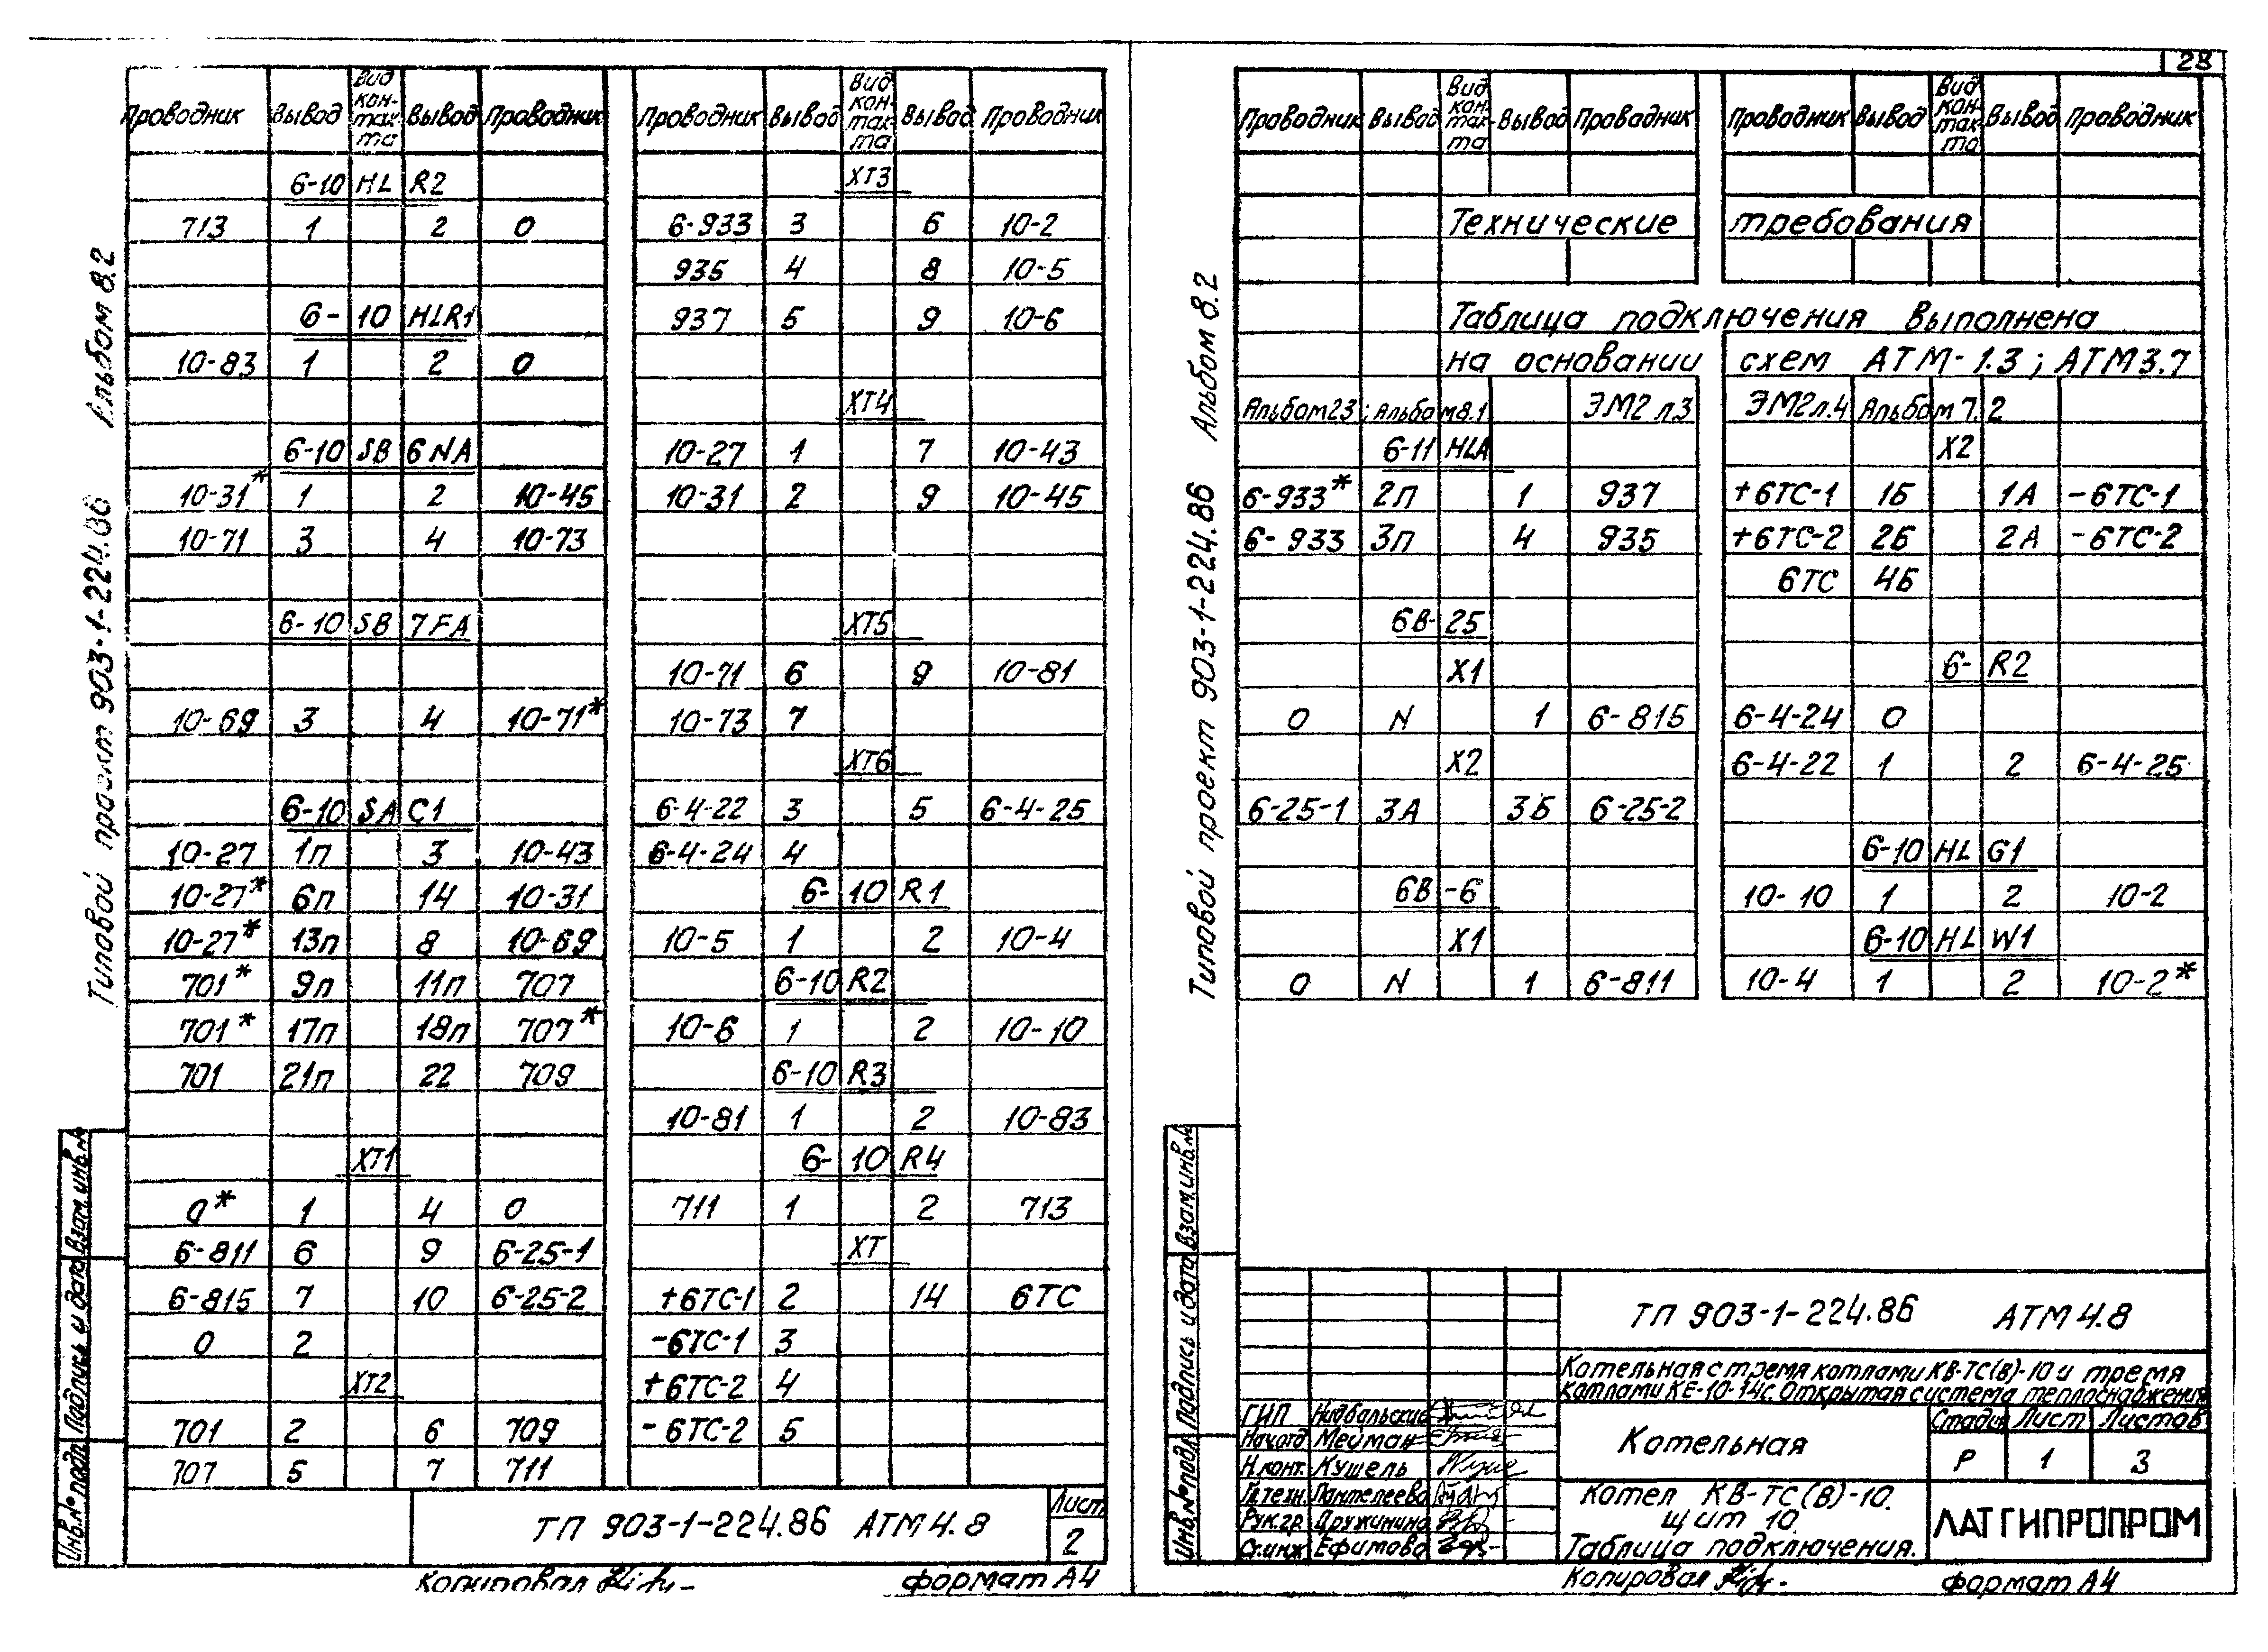 28
Альбом 8.2
Типовой проект 903-1-224.86
Проводник Вывод Вид контакта Вывод Проводник
6-10 HL R2
713 1 2 0
6-10 HLR1
10-83 1 2 0
6-10 SB 6NA
10-31* 1 2 10-45
10-71 3 4 10-73
6-10 SB 7FA
10-69 3 4 10-71*
6-10 SA C1
10-27 1п 3 10-43
10-27* 6п 14 10-31
10-27* 13п 8 10-69
701* 9п 11п 707
701* 17п 18п 707*
701 21п 22 709
XT1
0* 1 4 0
6-811 6 9 6-25-1
6-815 7 10 6-25-2
0 2
XT2
701 2 6 709
707 5 7 711
Проводник Вывод Вид контакта Вывод Проводник
XT3
6-933 3 6 10-2
935 4 8 10-5
937 5 9 10-6
XT4
10-27 1 7 10-43
10-31 2 9 10-45
XT5
10-71 6 9 10-81
10-73 7
XT6
6-4-22 3 5 6-4-25
6-4-24 4
6-10 R1
10-5 1 2 10-4
6-10 R2
10-6 1 2 10-10
6-10 R3
10-81 1 2 10-83
6-10 R4
711 1 2 713
XT
+6TC-1 2 14 6TC
-6TC-1 3
+6TC-2 4
-6TC-2 5
Инв.№ подл. Подпись и дата Взам.инв.№
ТП 903-1-224.86 АТМ 4.8
Лист
2
Копировал
Формат А4
Альбом 8.2
Типовой проект 903-1-224.86
Проводник Вывод Вид контакта Вывод Проводник
Проводник Вывод Вид контакта Вывод Проводник
Технические требования
Таблица подключения выполнена
на основании схем АТМ-1.3; АТМ3.7
Альбом 2.3; Альбом 8.1 ЭМ2 л.3 ЭМ2 л.4 Альбом 7.2
6-11 HLA
6-933* 2п 1 937
6-933 3п 4 935
6В-25
X1
0 N 1 6-815
X2
6-25-1 3А 3Б 6-25-2
6В-6
X1
0 N 1 6-811
X2
+6TC-1 1Б 1А -6TC-1
+6TC-2 2Б 2А -6TC-2
6TC 4Б
6-R2
6-4-24 0
6-4-22 1 2 6-4-25
6-10 HL G1
10-10 1 2 10-2
6-10 HL W1
10-4 1 2 10-2*
Инв.№ подл. Подпись и дата Взам.инв.№
ТП 903-1-224.86 АТМ 4.8
Котельная с тремя котлами КВ-ТС(В)-10 и тремя
котлами КЕ-10-14с. Открытая система теплоснабжения
ГИП Нидбальский
Нач.отд Мейман
Н.конт. Кушель
Гл.техн. Пантелеева
Рук.гр. Дружинина
Ст.инж Ефимова
Котельная
Стадия Лист Листов
Р 1 3
Котел КВ-ТС(В)-10.
щит 10.
Таблица подключения.
ЛАТГИПРОПРОМ
Копировал
Формат А4